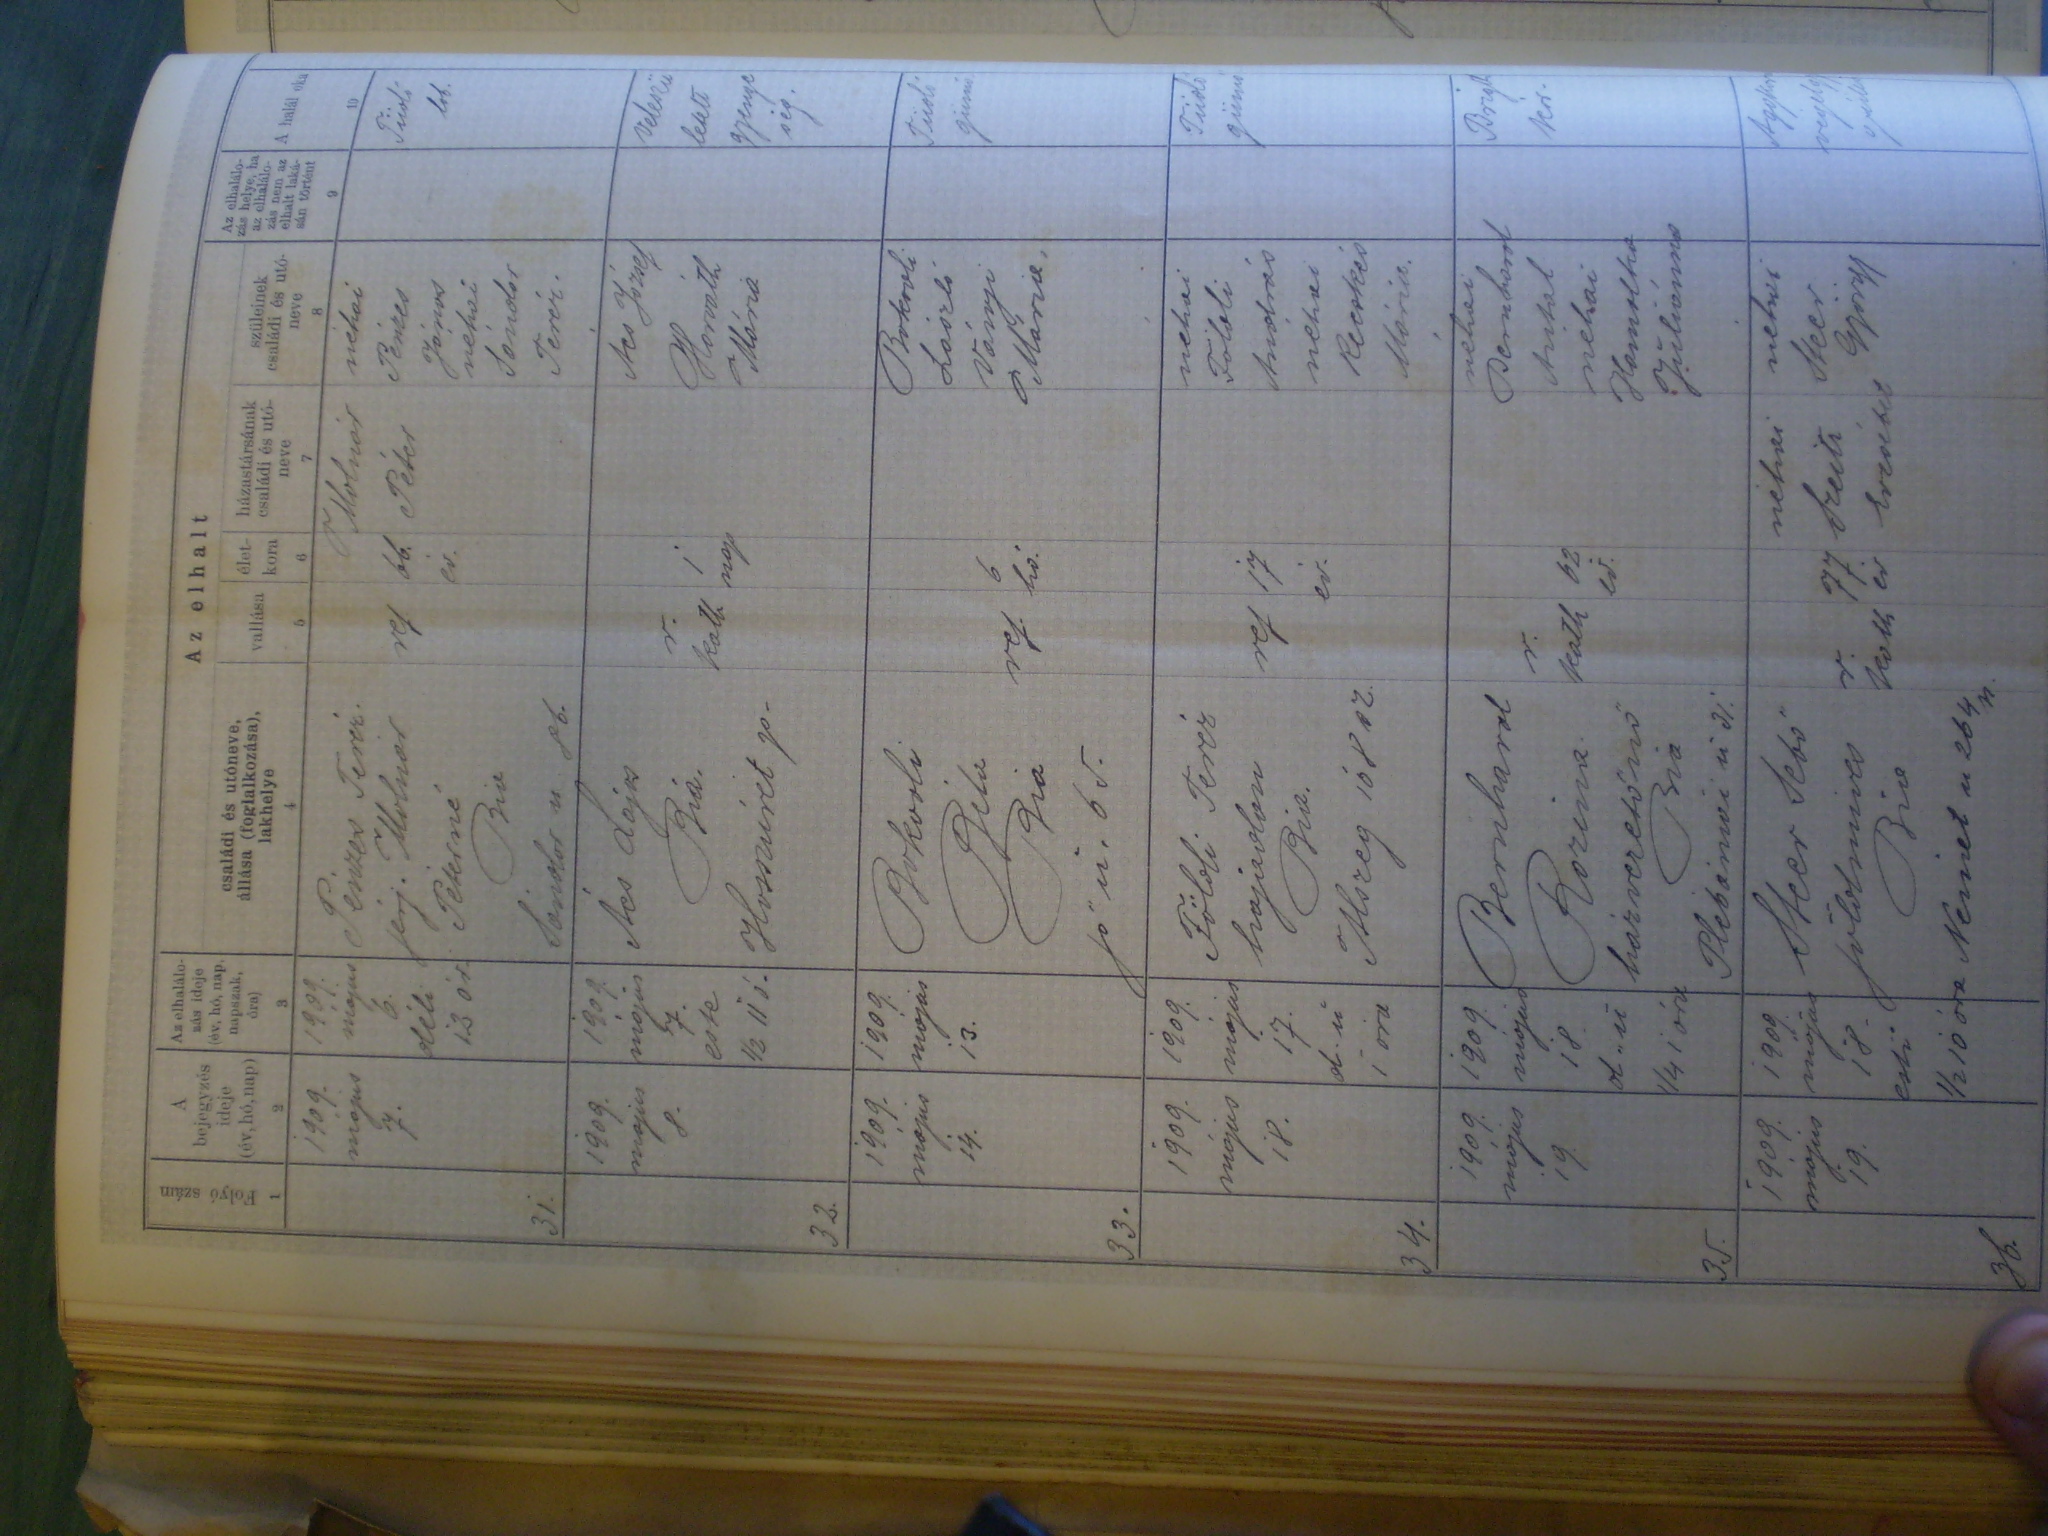 Az elhalt
Folyó szám
A bejegyzés ideje (év, hó, nap)
Az elhalálozás ideje (év, hó, nap, napszak, óra)
családi és utóneve, állása (foglalkozása), lakhelye
vallása
életkora
házastársának családi és utóneve
szüleinek családi és utóneve
Az elhalálozás helye, ha az elhalálozás nem az elhalt lakásán történt
A halál oka
1 2 3 4 5 6 7 8 9 10
31.
1909.
május
7.
1909.
május
6.
déli
12 ór.
Pénzes Teréz.
férj. Molnár
Péterné
Bia
Sándor u. 86.
ref
66
év.
Molnár
Péter
néhai
Pénzes
János
néhai
Sándor
Teréz.
Tüdő
lob.
32.
1909.
május
8.
1909.
május
7.
este
½ 11 ó.
Ács Lajos
Bia.
r.
kath
1
nap
Ács József
Horváth
Mária
Veleszü
letett
gyenge
ség.
33.
1909.
május
14.
1909.
május
13.
Bokodi
Béla
Bia
fő u. 65.
ref.
6
hó.
Bokodi
László
Mária.
Tüdő
gümő
34.
1909.
május
18.
1909.
május
17.
d. u
1 óra
Földi Teréz
hajadon
Bia.
Alszeg 108 sz.
ref
17
év.
nehai
Földi
András
nehai
Kecskés
Mária.
Tüdő
gümő
35.
1909.
május
19.
1909.
május
18.
d. u
¼ 1 óra
Bernhard
Rozina.
házvezetőnő
Bia
Plébániai u 31.
r.
kath
62
év.
nehai
Bernhard
Antal
néhai
Julianna
kór.
36.
1909.
május
19.
1909.
május
18.
este
½ 10 óra
Steer Sebő
földmives
Bia
Német u 264
n.
r.
kath
77
év
néhai
Erzsébet
nehai
Steer
György